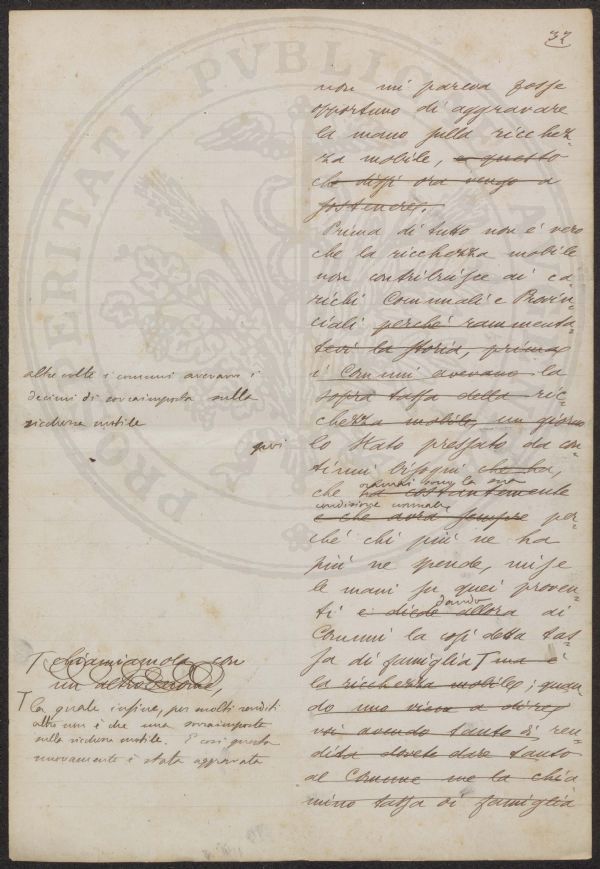 32
non mi pareva fosse
opportuno di aggravare
la mano sulla ricchez-
za mobile, e questo
che dissi ora vengo a
sostenere.
Prima di tutto non è vero
che la ricchezza mobile
non contribuisce ai ca-
richi Comunali e Provin-
ciali perché rammenta-
tevi la storia, prima
i Comuni avevano la
sopra tassa della ric-
chezza mobile, un giorno
lo Stato pressato da con-
tinui bisogni che ha,
che oramai sono la sua
ha costantemente
condizione normale
e che avrà sempre per-
ché chi più ne ha
più ne spende, mise
le mani su quei proven-
ti e diede allora dando ai
Comuni la così detta tas-
sa di famiglia T ma è
la ricchezza mobile; quan-
do uno viene a dire
voi avendo tanto di ren-
dita dovete dare tanto
al Comune me la chia
mino tassa di famiglia
altre volte i comuni avevano i
decimi di sovraimposta sulla
ricchezza mobile
poi
T chiamiamola con
un altro nome,
T la quale infine, per molti redditi
altro non è che una sovraimposta
sulla ricchezza mobile. E così questa
nuovamente è stata aggravata
PROSPERITATI PVBLICAE